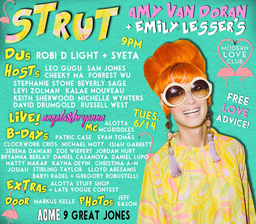 STRUT
AMY VAN DORAN
+ EMILY LESSER'S
9PM
DJs ROBI D LIGHT + SVETA
HOSTS LEO GUGU SAM JONES
CHEEKY MA FORREST WU
STEPHANIE STONE BEVERLY SAGE
LEVI ZOLMAN KALAE NOUVEAU
KEITH SHERWOOD MICHELLE WINTERS
DAVID DRUMGOLD RUSSELL WEST
MODERN
LOVE
CLUB
FREE
LOVE
ADVICE!
LIVE! angela&bryanna
MC ALOTTA
MCRIDDLES
TUES,
6/14
B-DAYS PATRIC CASE EVAN TOMAS
CLOCKWORK CROS MICHAEL MOTT ISIAH GARRETT
SERENA DANIARI ZOE WIEPERT JORDAN HURT
BRYANNA BERLAT DANIEL CASANOVA DANIEL LUPO
NATTY MAKAR KAYNA DEVIN CHRISTINA A-M
JOSIAH STIRLING TAYLOR LLOYD ADAMS
BABYJ RADEL + GREGORY ROBISTELLI
EXTRAS ALOTTA STUFF SHOP
+ LATE VOGUE CONTEST
DOOR MARKUS KELLE PHOTOS JEFF
EASON
ACME 9 GREAT JONES